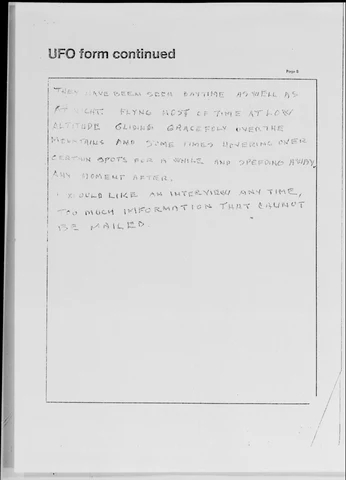 UFO form continued
Page 5
THEY HAVE BEEN SEEN DAYTIME AS WELL AS
AT NIGHT FLYNG MOST OF TIME AT LOW
ALTITUDE GLIDING GRACEFULY OVER THE
MOUNTAINS AND SOME TIMES HOVERING OVER
CERTAIN SPOTS FOR A WHILE AND SPEEDING AWAY
ANY MOMENT AFTER.
I WOULD LIKE AN INTERVIEW ANY TIME,
TOO MUCH INFORMATION THAT CANNOT
BE MAILED.